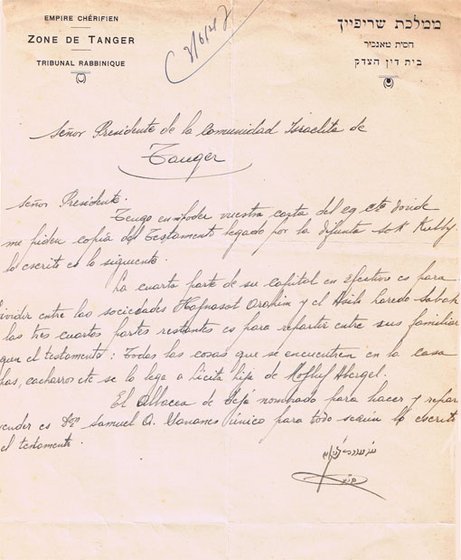 EMPIRE CHÉRIFIEN
ZONE DE TANGER
TRIBUNAL RABBINIQUE
ממלכת שריפייך
בית דין הצדק
Señor Presidente de la Comunidad Israelita de
Tanger
Señor Presidente.
Tengo en mi poder vuestra carta del 29 Cte donde
me piden copia del Testamento legado por la difunta
lo escrito es lo siguiente.
La cuarta parte de su capital en efectivo es para
dividir entre las sociedades Hajnasat Orahim y el Asilo Laredo Sabah
las tres cuartas partes restantes es para repartir entre sus familiar
el testamento: Todas las cosas que se encuentren en la casa
cacharros etc se lo lega a Licita hija de Abergel.
El Albacea de Deja nombrado para hacer y repar
es Dn Samuel A. único para todo según lo escrito
el testamento.